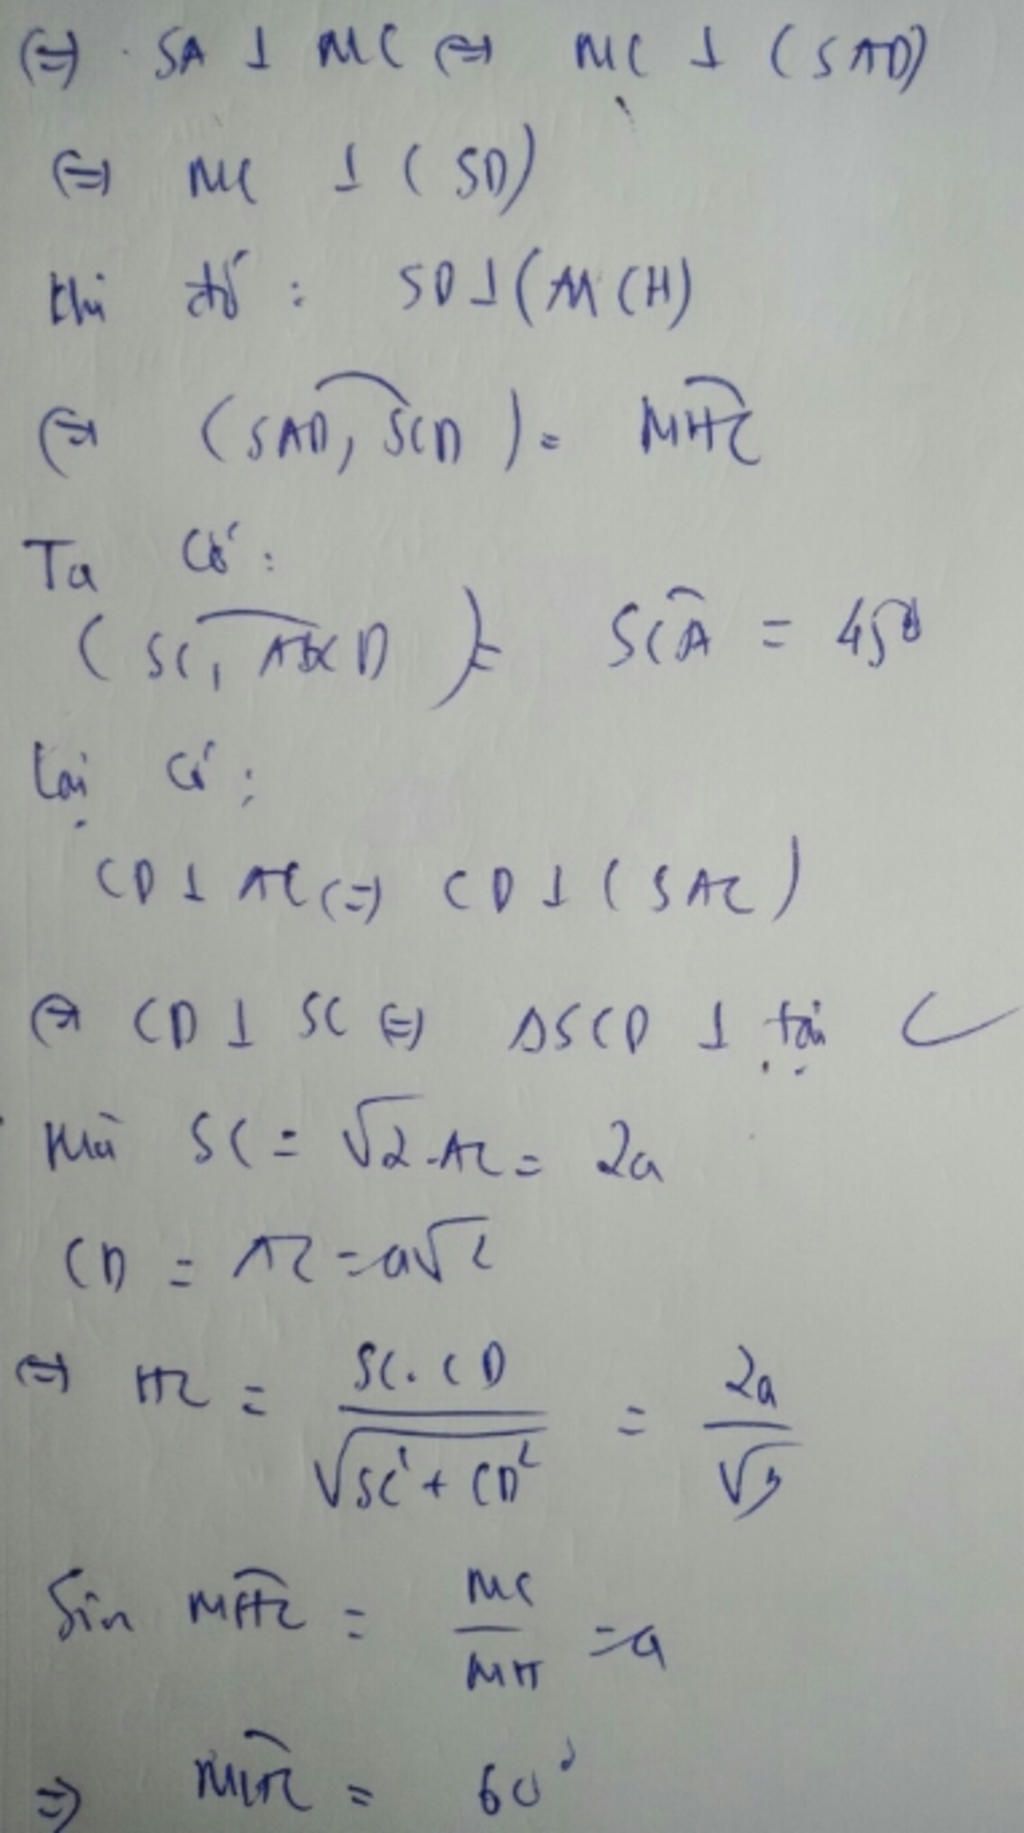 (=) SA ⊥ MC (=) MC ⊥ (SAD)
(=) MC ⊥ (SD)
khi đó : SD ⊥ (MCH)
(=) (SAD, SCD) = MHC
Ta có :
(SC, ABCD) = SCA = 45°
Lại có :
CD ⊥ AC (=) CD ⊥ (SAC)
(=) CD ⊥ SC (=) ΔSCD ⊥ tại C
Mà SC = √2.AC = 2a
CD = AC = a√2
(=) HC = SC.CD / √SC² + CD² = 2a / √3
Sin MHC = MC / MH = a
=> MHC = 60°